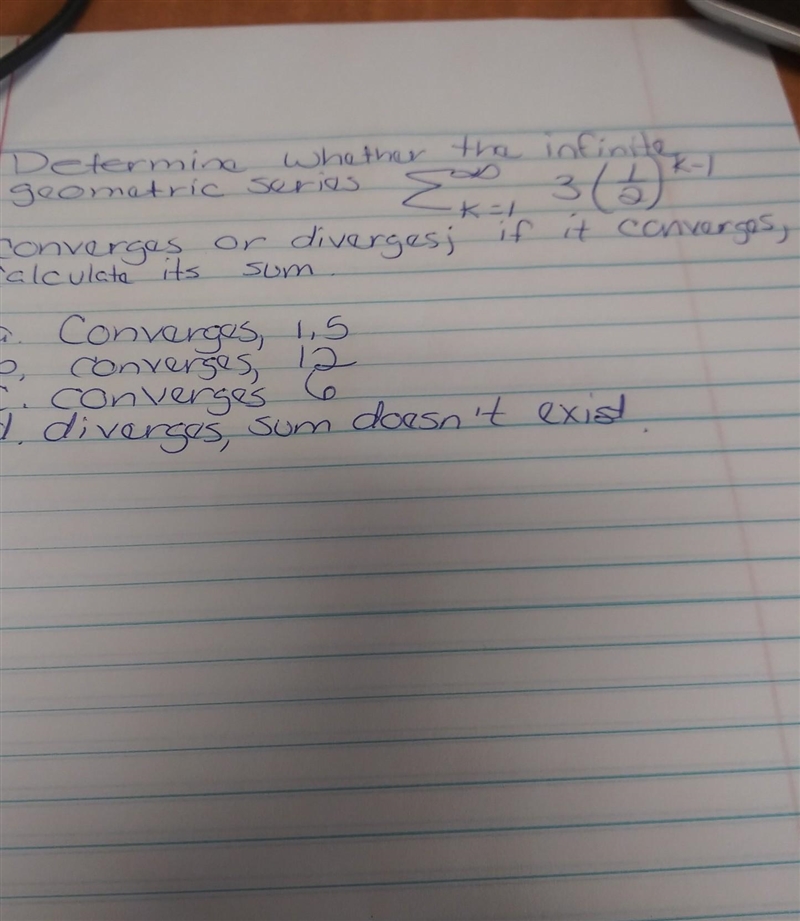 Determine whether the infinite
geometric series ∑_{k=1}^{∞} 3(1/2)^{k-1}
converges or diverges; if it converges,
calculate its sum.
a. Converges, 1.5
b. converges, 12
c. converges 6
d. diverges, sum doesn't exist.